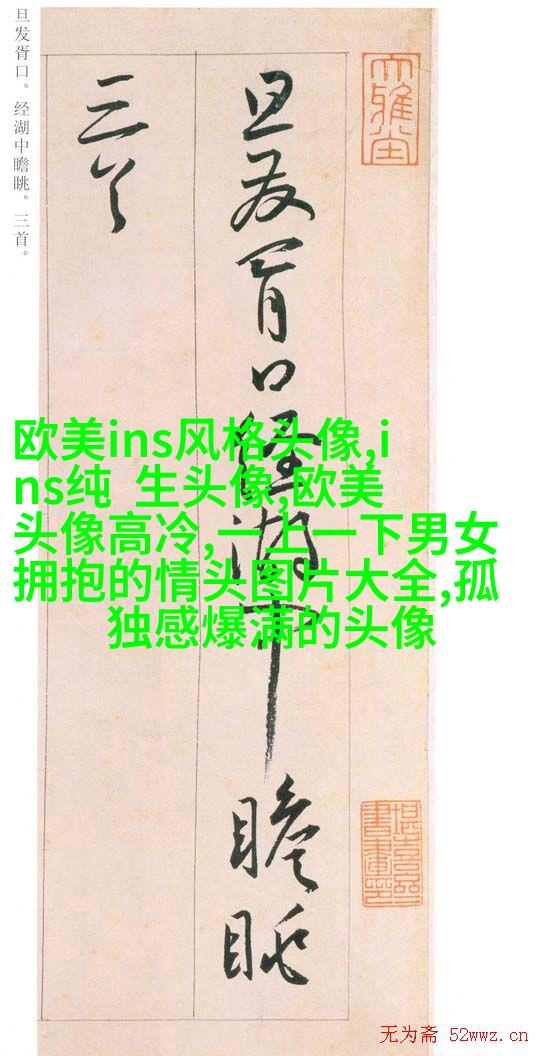 旦发胥口。经湖中瞻眺。三首。
旦发胥口经湖中
瞻眺
三首
大雅堂
欧美ins风格头像,i
ns纯 生头像,欧美
头像高冷,一上一下男女
拥抱的情头图片大全,孤
独感爆满的头像
无为斋 52wwz.cn